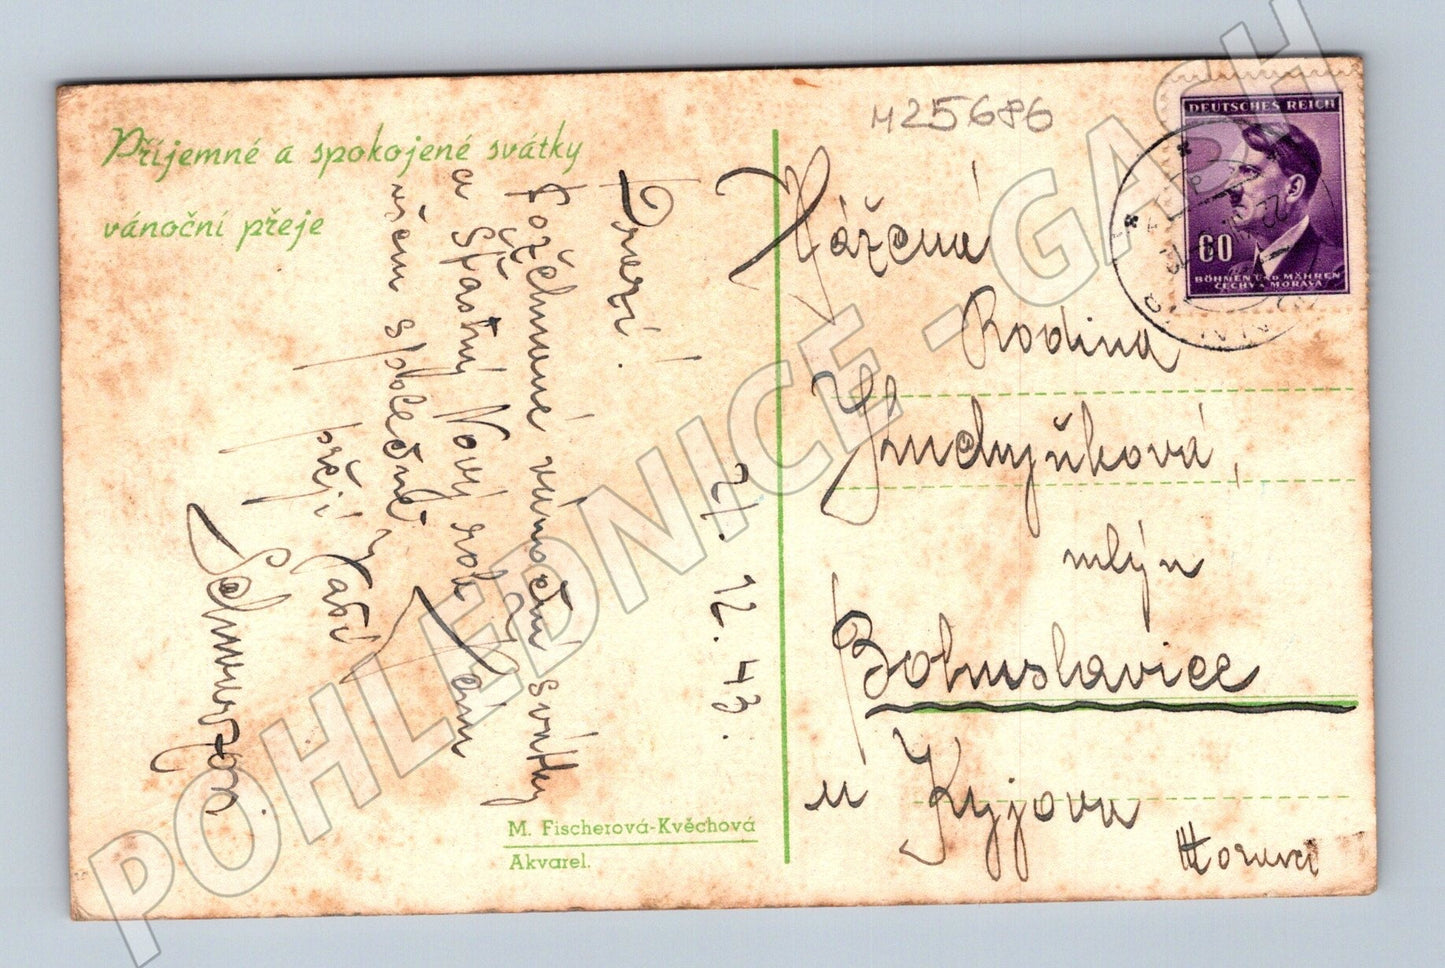 Příjemné a spokojené svátky
vánoční přeje
M25686
DEUTSCHES REICH
60
BÖHMEN UND MÄHREN
ČECHY A MORAVA
Drazí!
21. 12. 43.
Požehnané vánoční svátky
a Šťastný Nový rok Vám
všem společně
přejí Vaši
Vážená
Rodina
mlýn
Bohuslavice
u Kyjova
Morava
M. Fischerová-Kvěchová
Akvarel.
POHLEDNICE - GASH